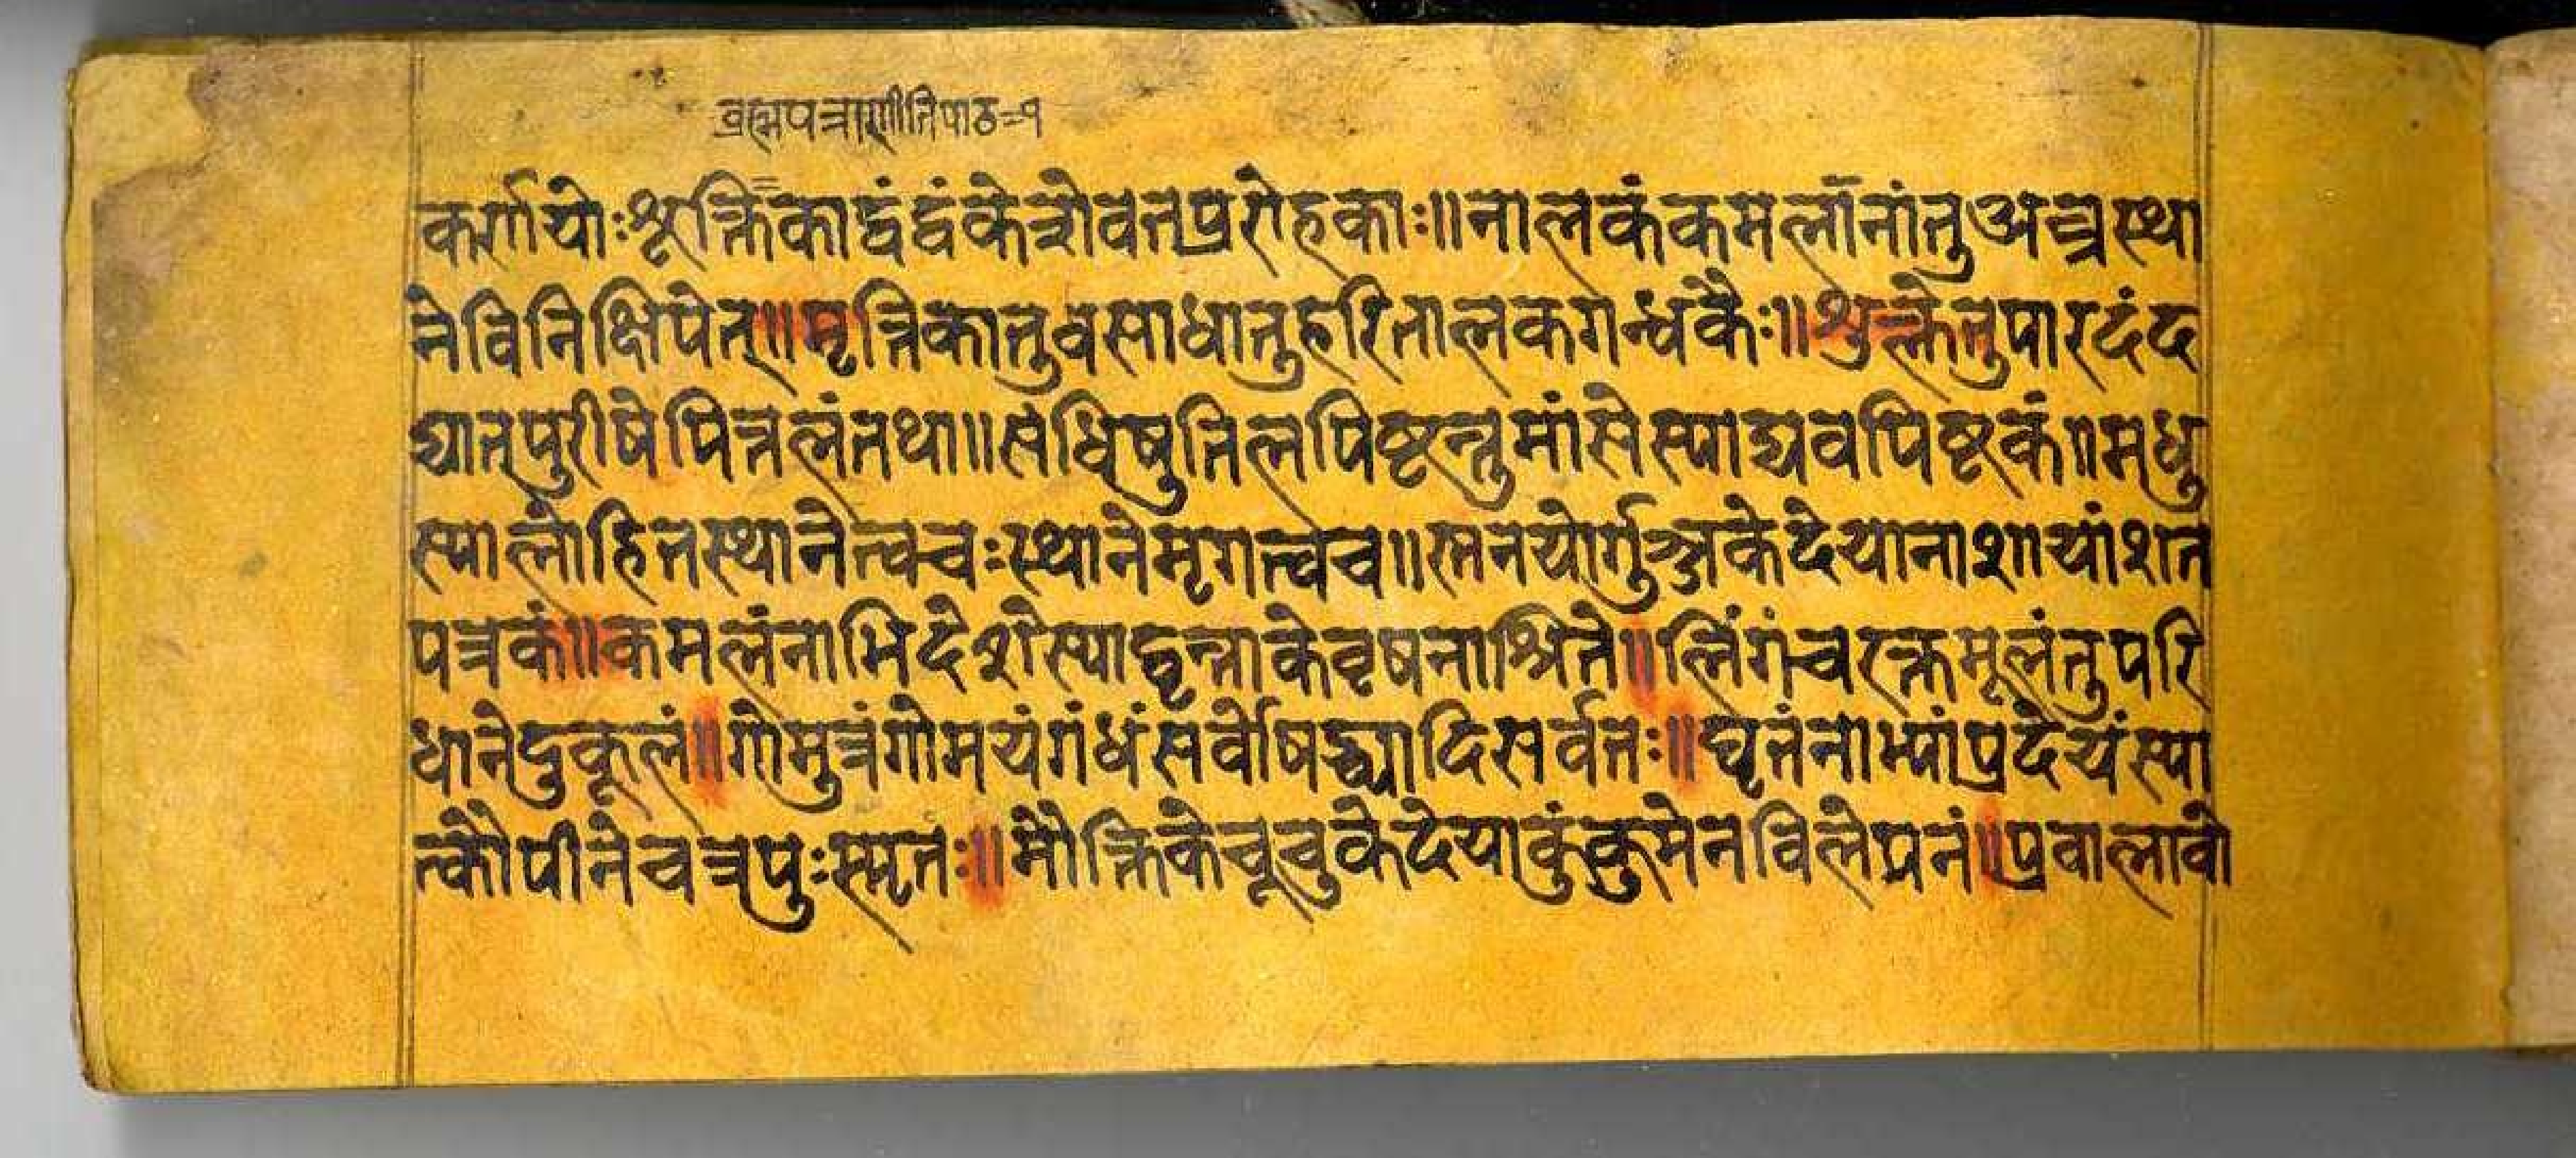 ब्रह्मपत्राणीतिपाठ=१
कर्णयोःश्रूक्तिकाद्वंद्वंकेशेवतप्ररोहकाः॥नालकंकमलांनांतुअन्त्रस्था
नेविनिक्षिपेत्॥मृत्तिकातुवसाधातुहरितालकगन्धकैः॥शुक्लेतुपारदंद
द्यात्पुरीषेपित्तलंतथा॥संधिषुतिलपिष्टन्तुमांसेस्याद्यवपिष्टकं॥मधु
स्यालोहितस्थानेत्वचःस्थानेमृगत्वच॥स्तनयोर्गुञ्जकेदेयानाशायांशत
पत्रकं॥कमलंनाभिदेशेस्याद्वृन्ताकेवृषनाश्रिते॥लिंगंचरक्तमूलंतुपरि
धानेदुकूलं॥गोमुत्रंगोमयंगंधंसर्वेषद्ध्यादिसर्वतः॥घृतंनाभ्यांप्रदेयंस्या
त्कौपीनेचत्रपुःस्मृतः॥मौक्तिकेचूचुकेदेयाकुंकुमेनविलेप्रनं॥प्रवालावो